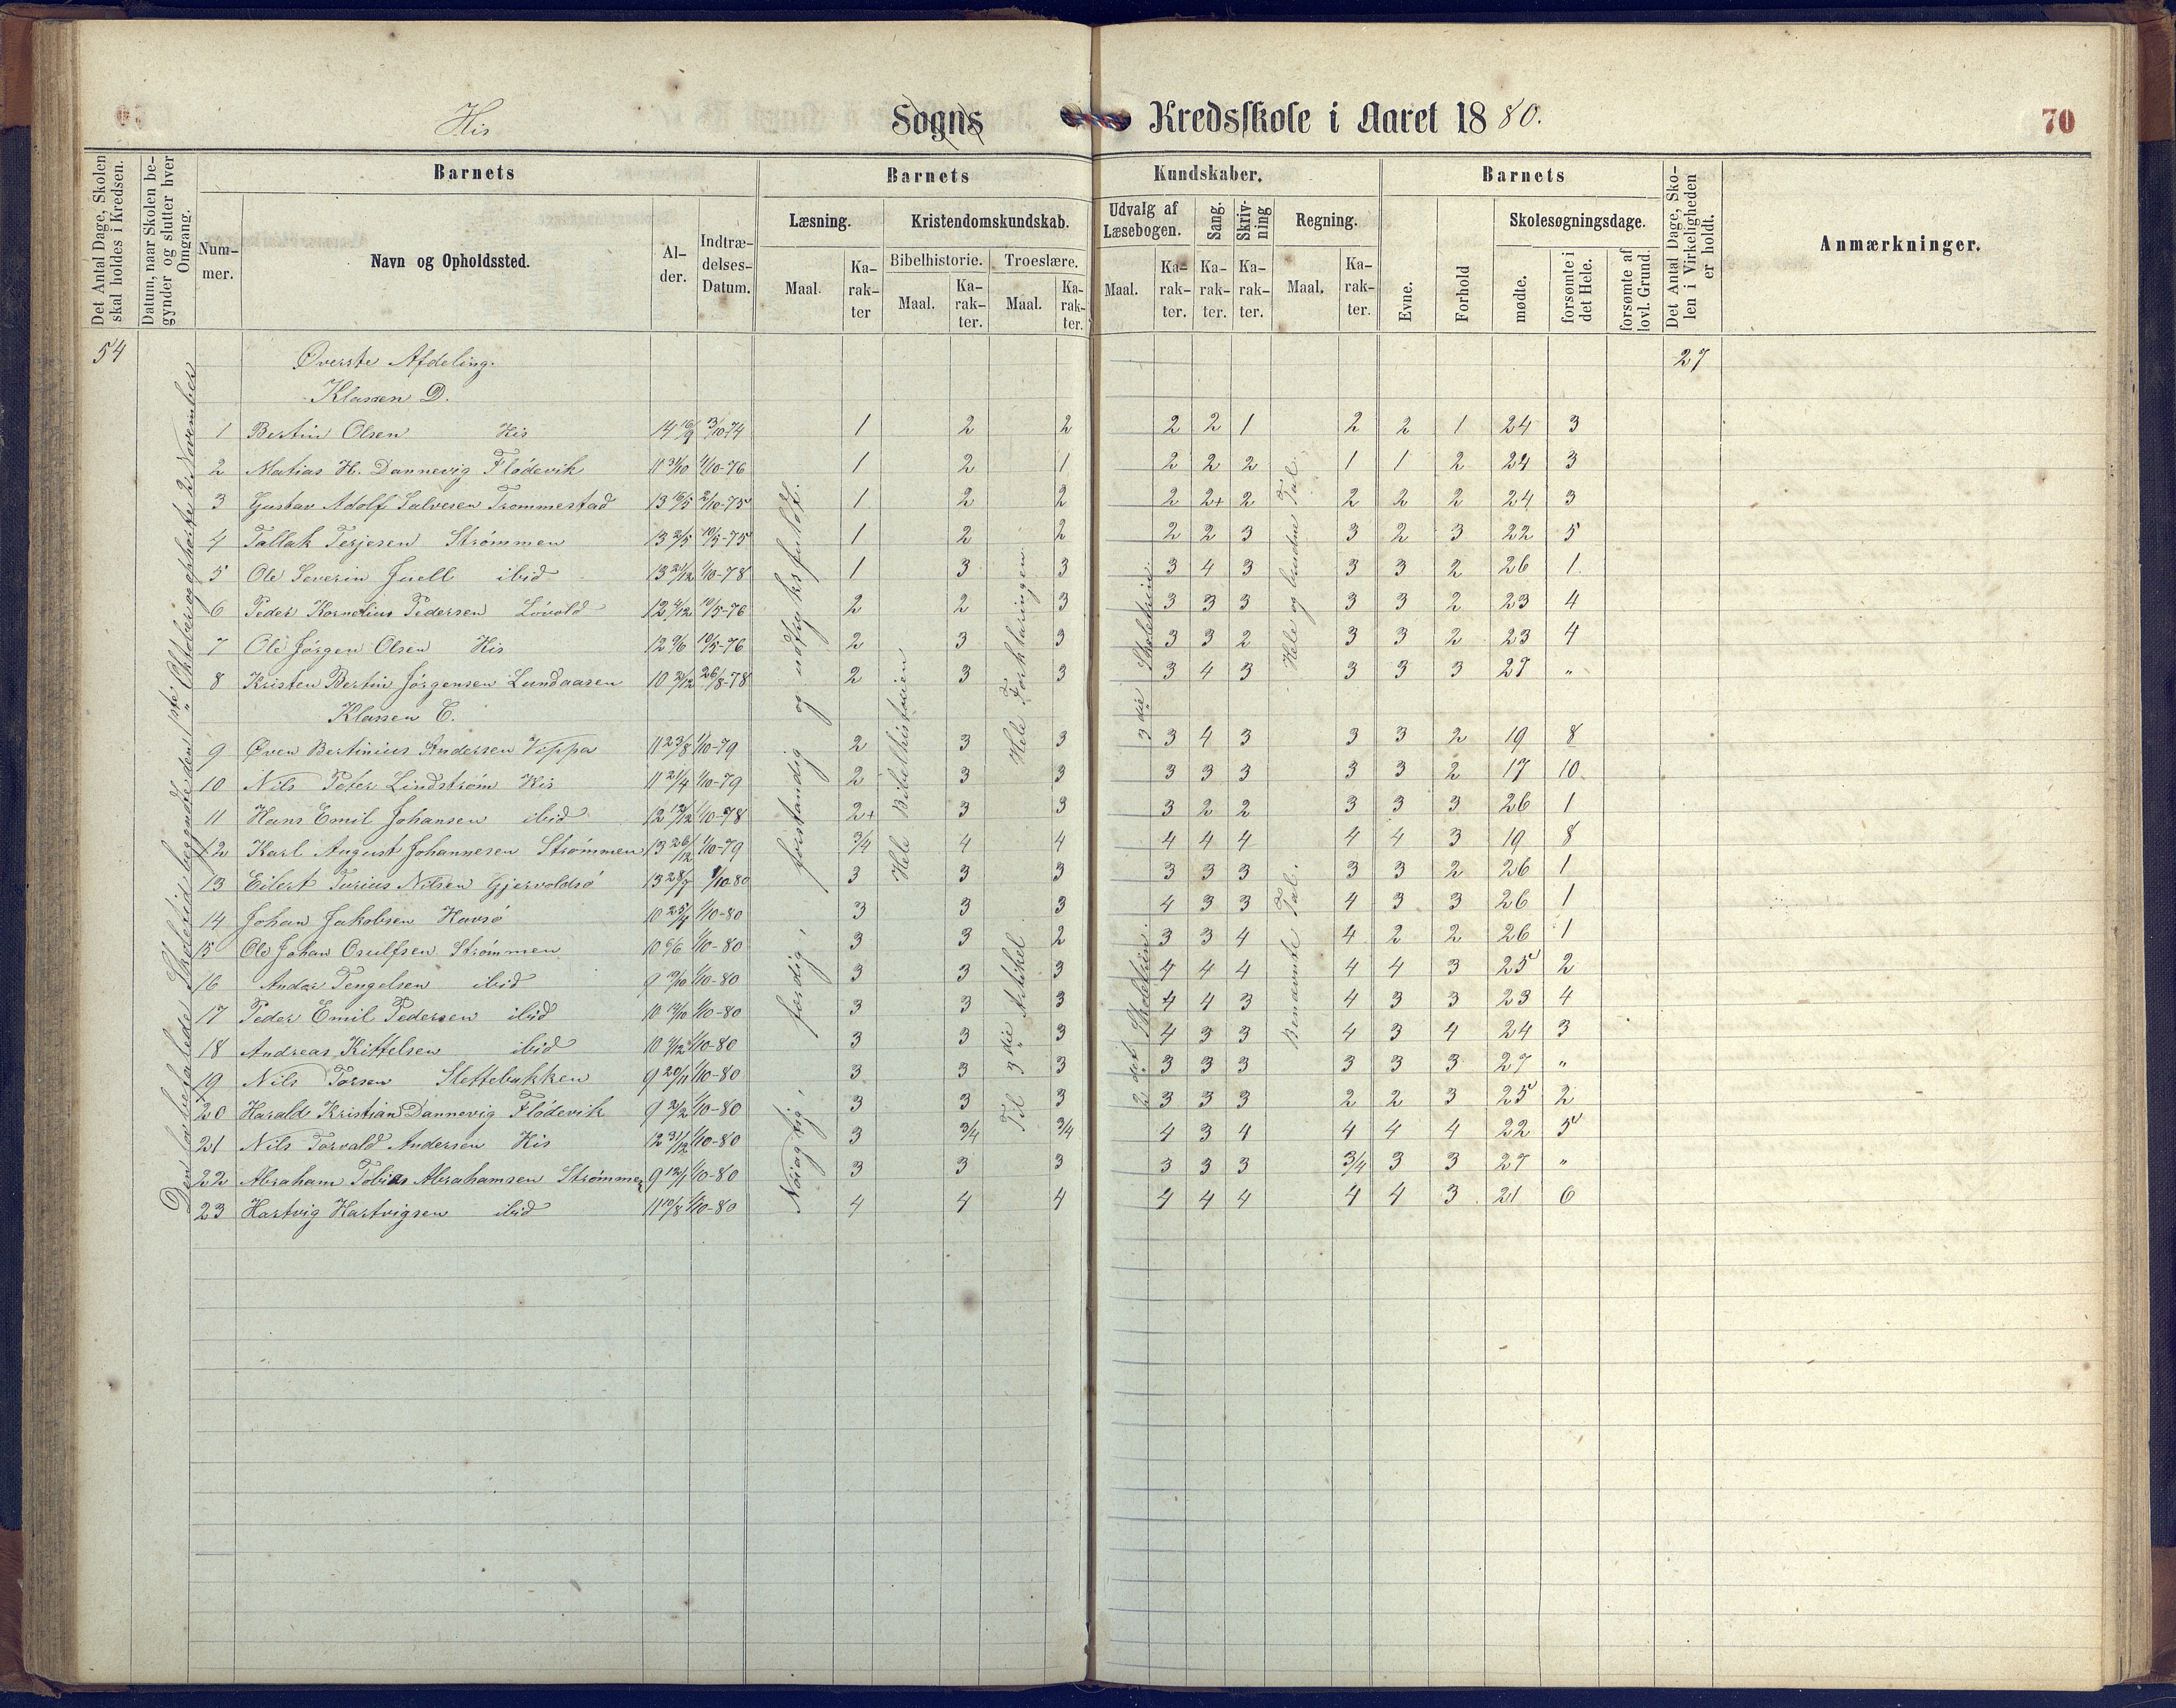 His Sogns Kredsskole i Aaret 1880.
70
Det Antal Dage, Skolen skal holdes i Kredsen.
Datum, naar Skolen begynder og slutter hver Omgang.
Barnets
Barnets
Kundskaber.
Barnets
Det Antal Dage, Skolen i Virkeligheden er holdt.
Anmærkninger.
Nummer.
Navn og Opholdssted.
Alder.
Indtrædelses-Datum.
Læsning.
Kristendomskundskab.
Udvalg af Læsebogen.
Sang.
Skrivning
Regning.
Evne.
Forhold
Skolesøgningsdage.
Bibelhistorie.
Troeslære.
Maal.
Karakter
Maal.
Karakter.
Maal.
Karakter.
Maal.
Karakter.
Karakter.
Karakter.
Maal.
Karakter.
mødte.
forsømte i det Hele.
forsømte af lovl. Grund.
54
27
Øverste Afdeling.
Klassen D.
1 Bertin Olsen His 14 16/9 3/10-74 1 2 2 2 2 1 2 2 1 24 3
2 Matias H. Dannevig Flödevik 11 31/10 1/10-76 1 2 1 2 2 2 1 1 2 24 3
3 Gustav Adolf Salvesen Trommestad 13 16/5 2/10-75 1 2 2 2 2+ 2 2 2 2 24 3
4 Tallak Terjesen Strømmen 13 2/5 10/5-75 1 2 2 2 2 3 3 2 3 22 5
5 Ole Severin Juell ibid 13 21/12 1/10-78 1 3 3 3 4 3 3 3 2 26 1
6 Peder Kornelius Pedersen Lövold 12 4/12 10/5-76 2 2 3 3 3 3 3 3 2 23 4
7 Ole Jörgen Olsen His 12 9/6 10/5-76 2 3 3 3 3 2 3 3 2 23 4
8 Kristen Bertin Jörgensen Lundaasen 10 21/12 26/8-78 2 3 3 3 4 3 3 3 3 27 "
Klassen C.
9 Øven Bertinius Andersen Vippa 11 23/8 1/10-79 2 3 3 3 4 3 3 3 2 19 8
10 Nils Peter Lindström His 11 21/4 1/10-79 2 3 3 3 3 3 3 3 2 17 10
11 Hans Emil Johansen ibid 12 12/12 1/10-78 2+ 3 3 3 2 2 3 3 3 26 1
12 Karl August Johannesen Strømmen 13 26/12 1/10-79 3/4 4 4 4 4 4 4 4 3 19 8
13 Eilert Turius Nilsen Gjervoldsö 13 28/7 1/10-80 3 3 3 3 3 3 3 3 2 26 1
14 Johan Jakobsen Havsö 10 25/4 1/10-80 3 3 3 4 3 3 4 3 3 26 1
15 Ole Johan Osulfsen Strømmen 10 6/6 1/10-80 3 3 2 3 3 4 4 2 2 26 1
16 Anders Tengelsen ibid 9 3/10 1/10-80 3 3 3 4 4 4 4 4 3 25 2
17 Peder Emil Pedersen ibid 10 12/10 1/10-80 3 3 3 4 4 3 4 3 3 23 4
18 Andreas Kittelsen ibid 10 3/12 1/10-80 3 3 3 4 3 3 4 3 4 24 3
19 Nils Torsen Slettebakken 9 20/11 1/10-80 3 3 3 3 3 3 3 3 3 27 "
20 Harald Kristian Dannevig Flödevik 9 2/2 1/10-80 3 3 3 3 3 3 2 2 3 25 2
21 Nils Torvald Andersen His 12 31/12 1/10-80 3 3/4 3/4 4 3 4 4 4 4 22 5
22 Abraham Tobias Abrahamsen Strømmen 9 12/1 1/10-80 3 3 3 3 3 3 3/4 3 3 27 "
23 Hartvig Hartvigsen ibid 11 10/8 1/10-80 4 4 4 4 4 4 4 4 3 21 6
Den lovbefalede Skoletid begyndte den 1ste Oktober og ophørte 2. November
Nöiagtig, færdig, forstandig og udtryksfuldt.
Hele Bibelhistorien
Hele Forklaringen
Til 3die Artikel
3die Skoletrin
2det Skoletrin.
Hele og brudne Tal.
Benævnte Tal.